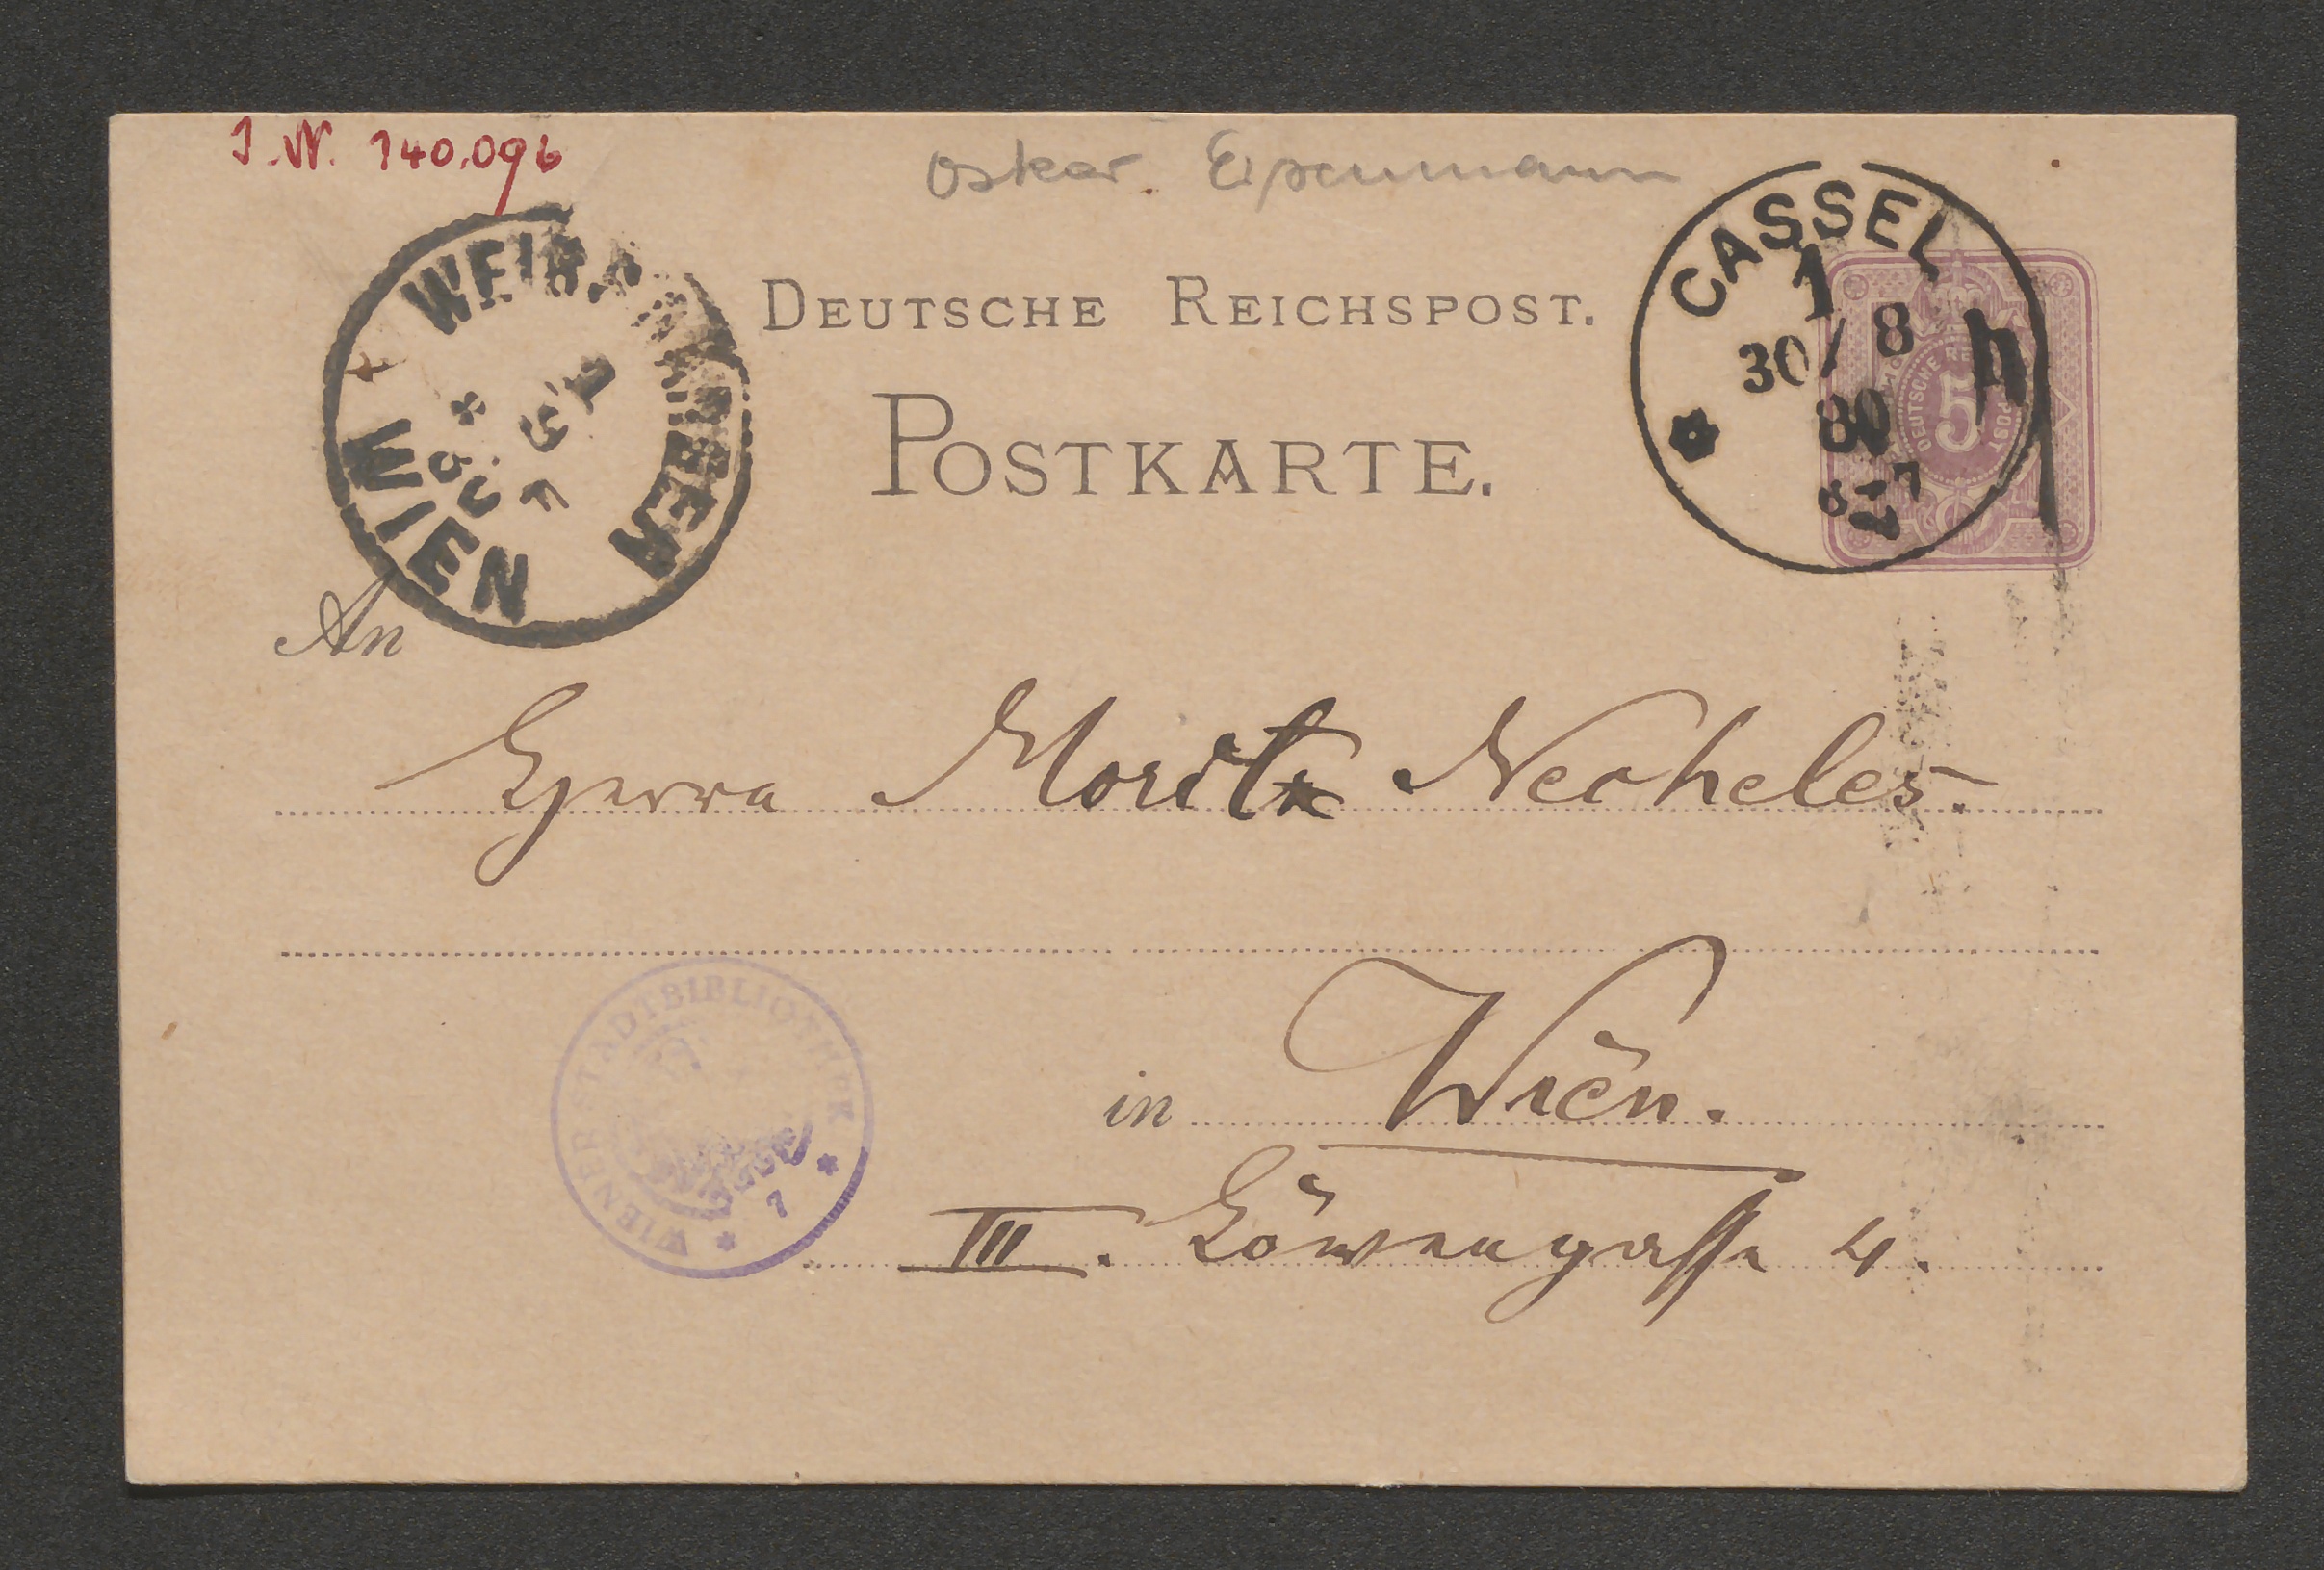 I.N. 140.096
Oskar Eisenmann
CASSEL
1
30/8
80
8-9
DEUTSCHE REICHSPOST.
5
POSTKARTE.
WIEN
An
Herrn Moritz Necheles.
in Wien.
III. Löwengasse 4.
WIENER STADTBIBLIOTHEK
* 7 *